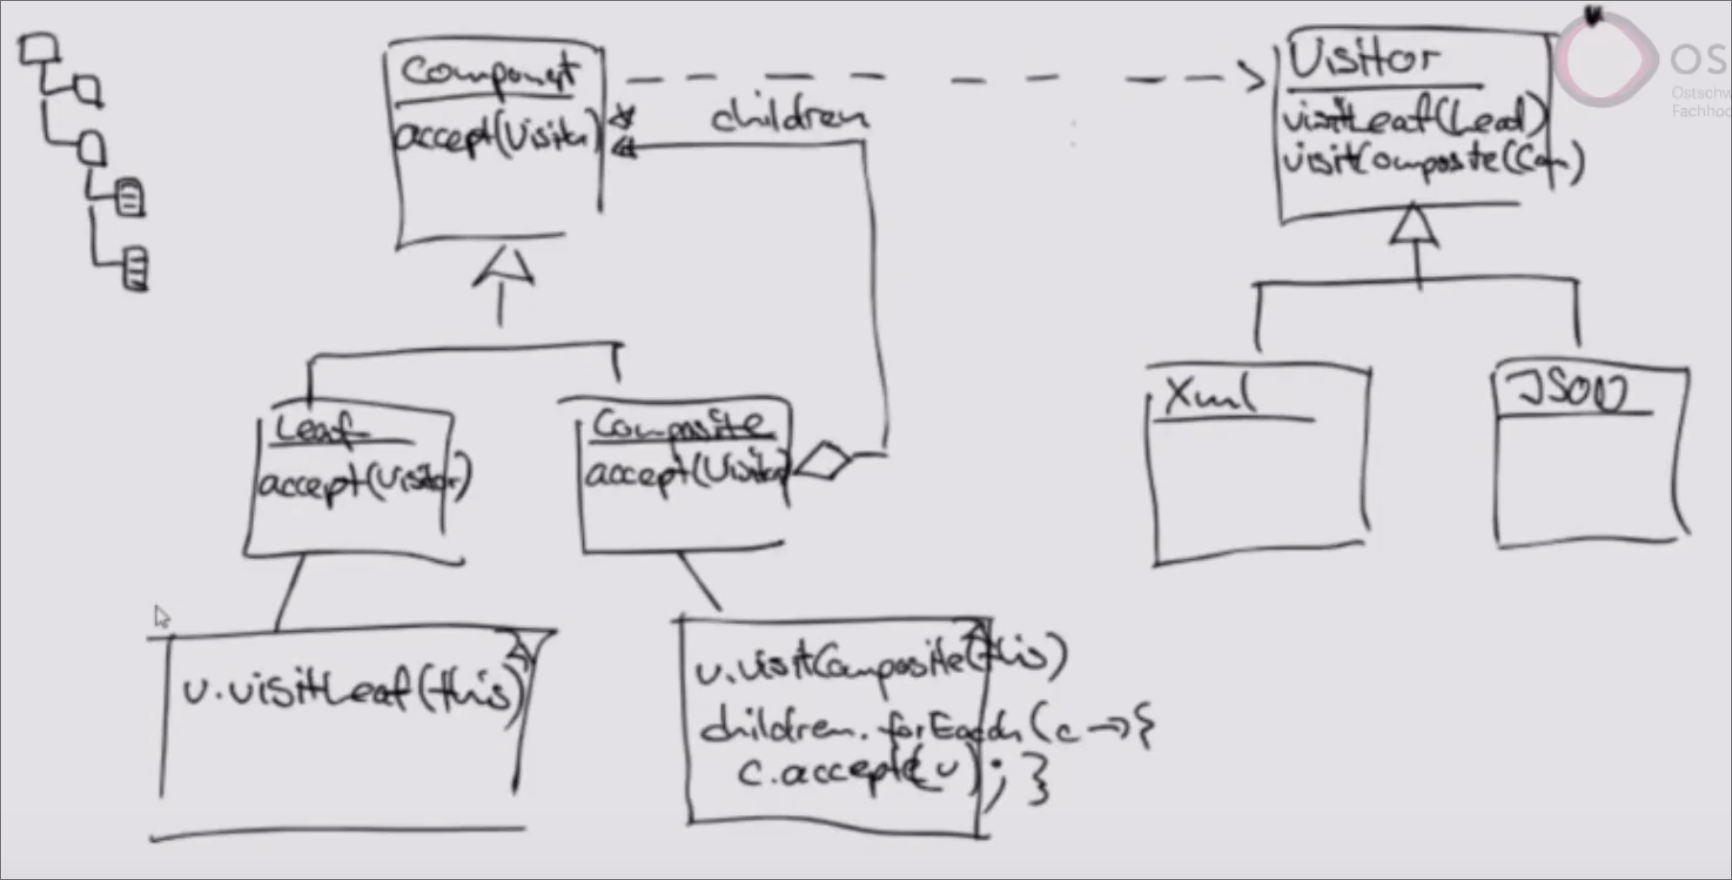 Component
accept(Visitor)
children
Visitor
visitLeaf(Lead)
visitComposite(Com)
OS
Ostschw
Fachhoc
Leaf
accept(Visitor)
Composite
accept(Visitor)
Xml
JSON
v.visitLeaf(this)
v.visitComposite(this)
children.forEach(c->{
c.accept(v);}